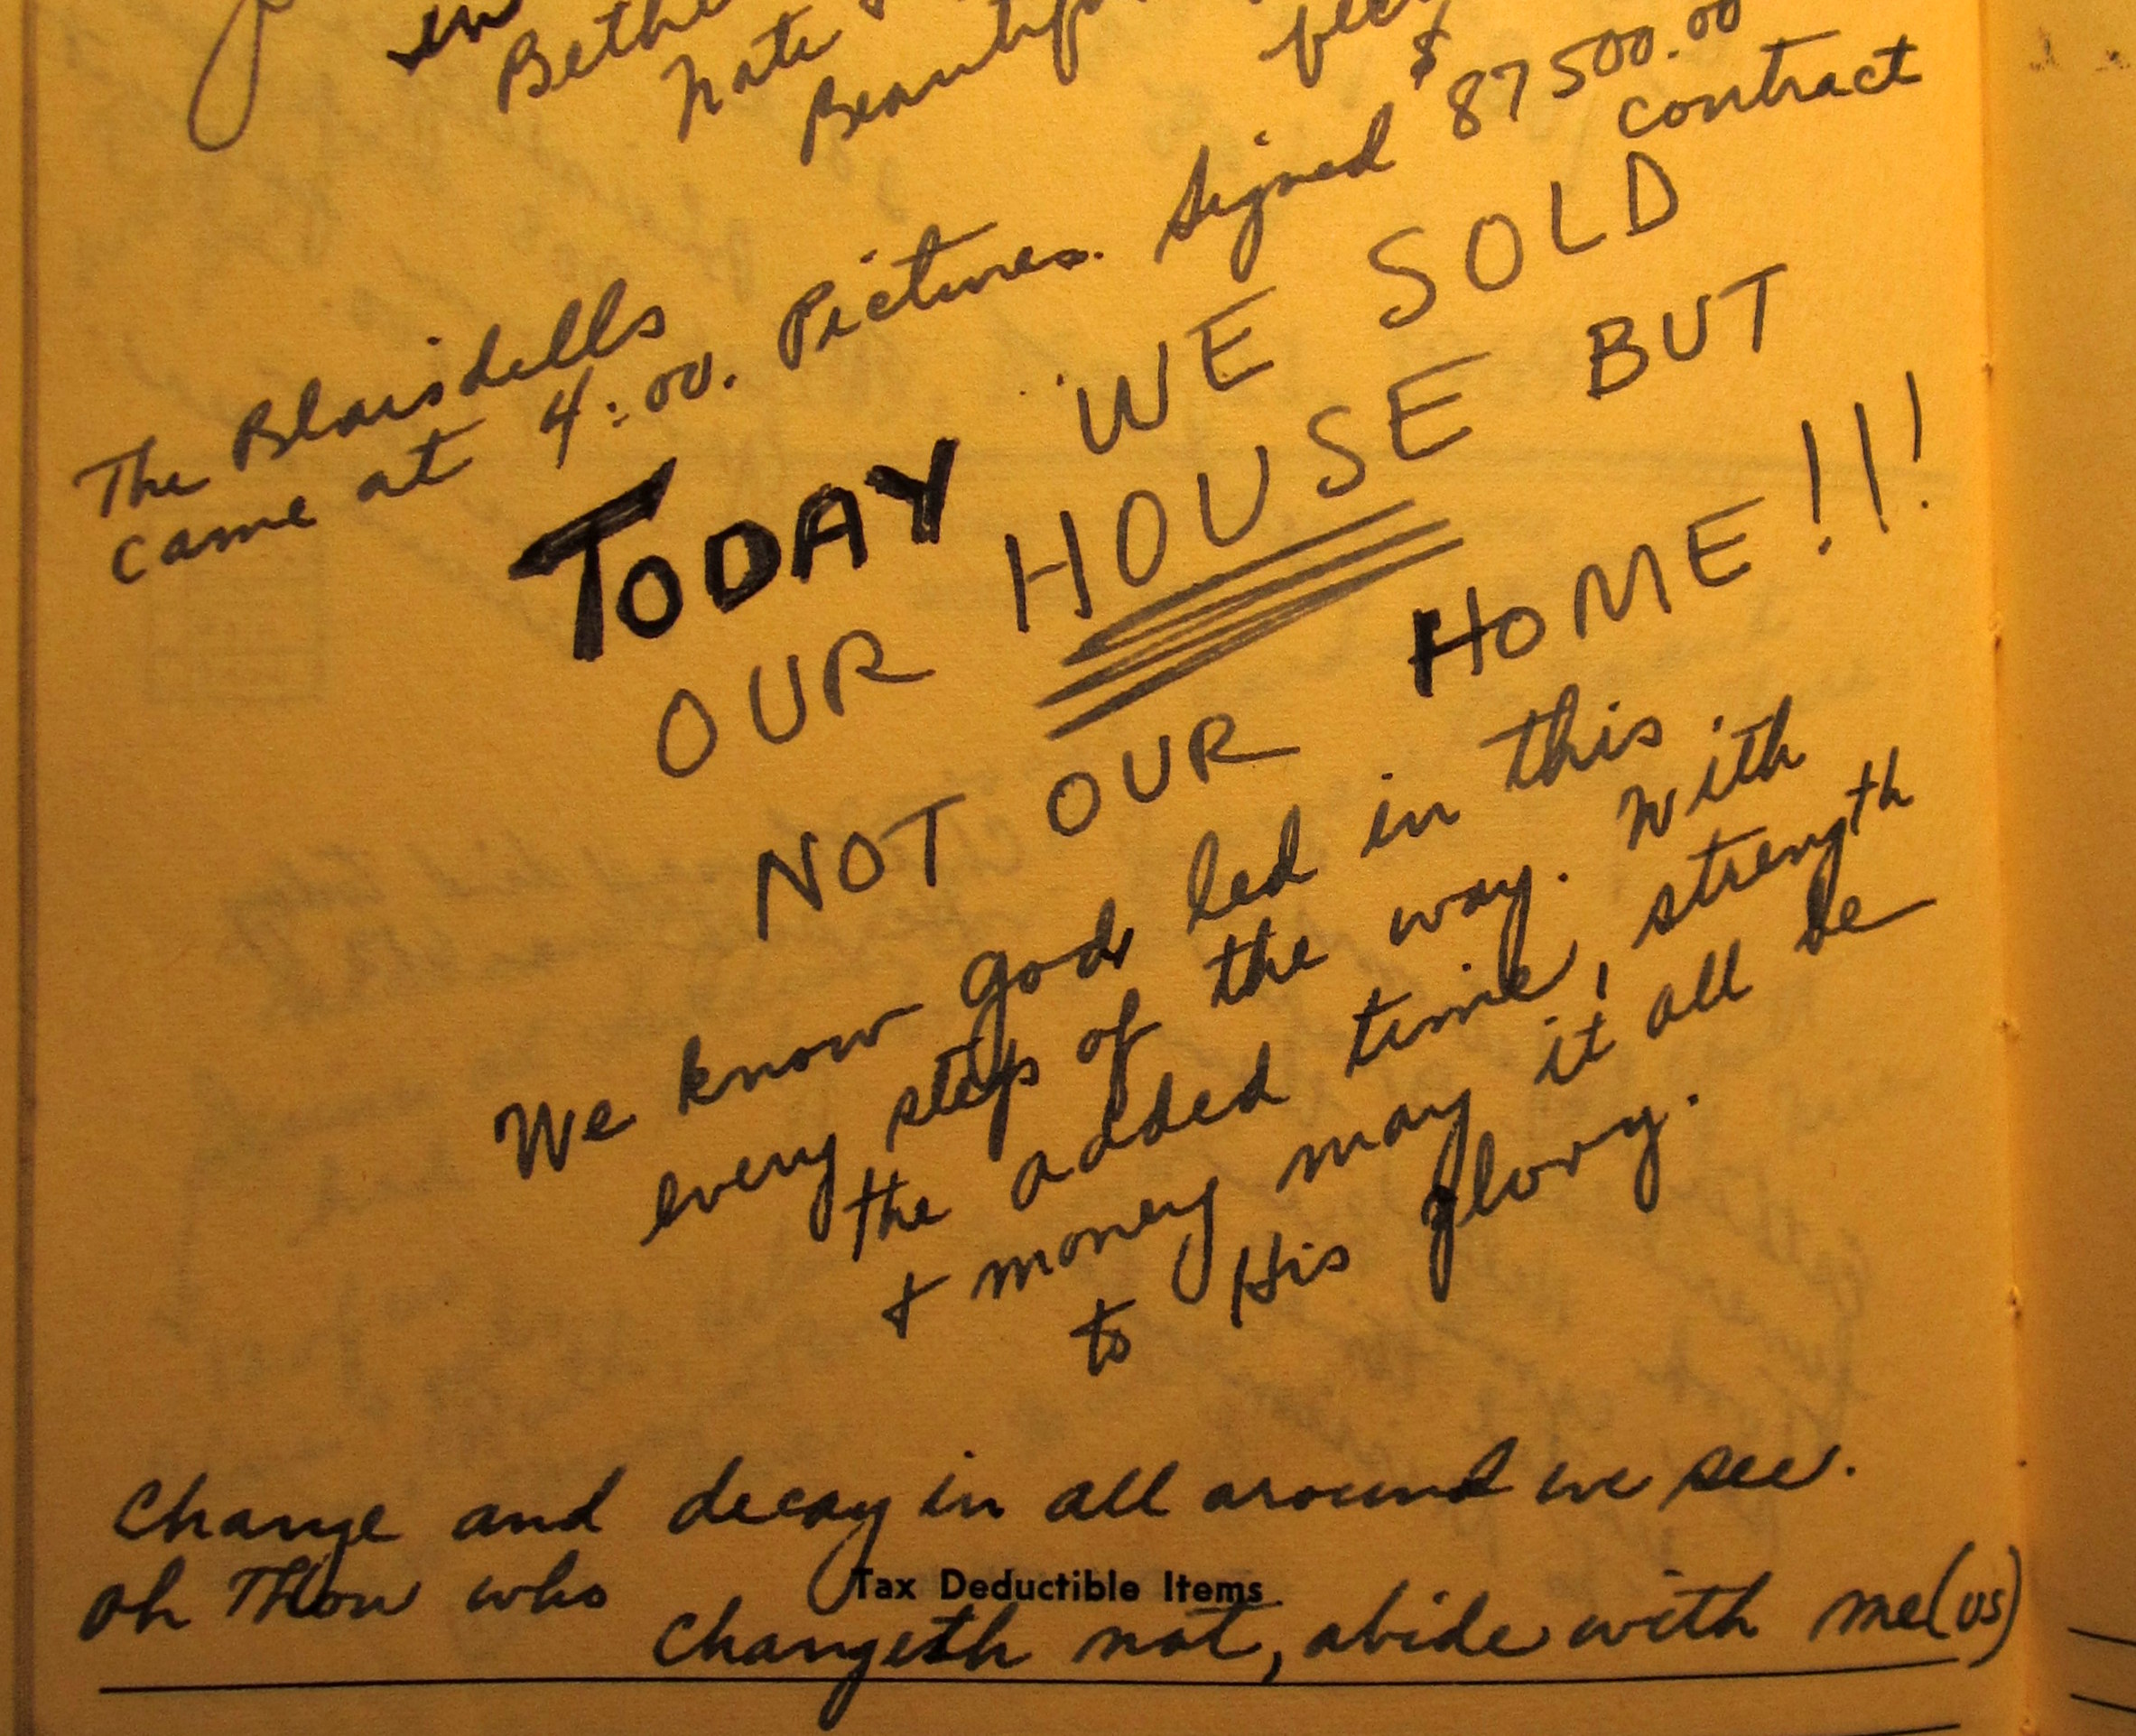 in
The Blaisdells
came at 4:00. Pictures. Signed $87500.00
contract
TODAY WE SOLD
OUR HOUSE BUT
NOT OUR HOME!!!
We know God led in this
every step of the way. With
the added time, strength
+ money may it all be
to His glory.
Change and decay in all around we see.
Oh Thou who
Tax Deductible Items
changeth not, abide with me (us)